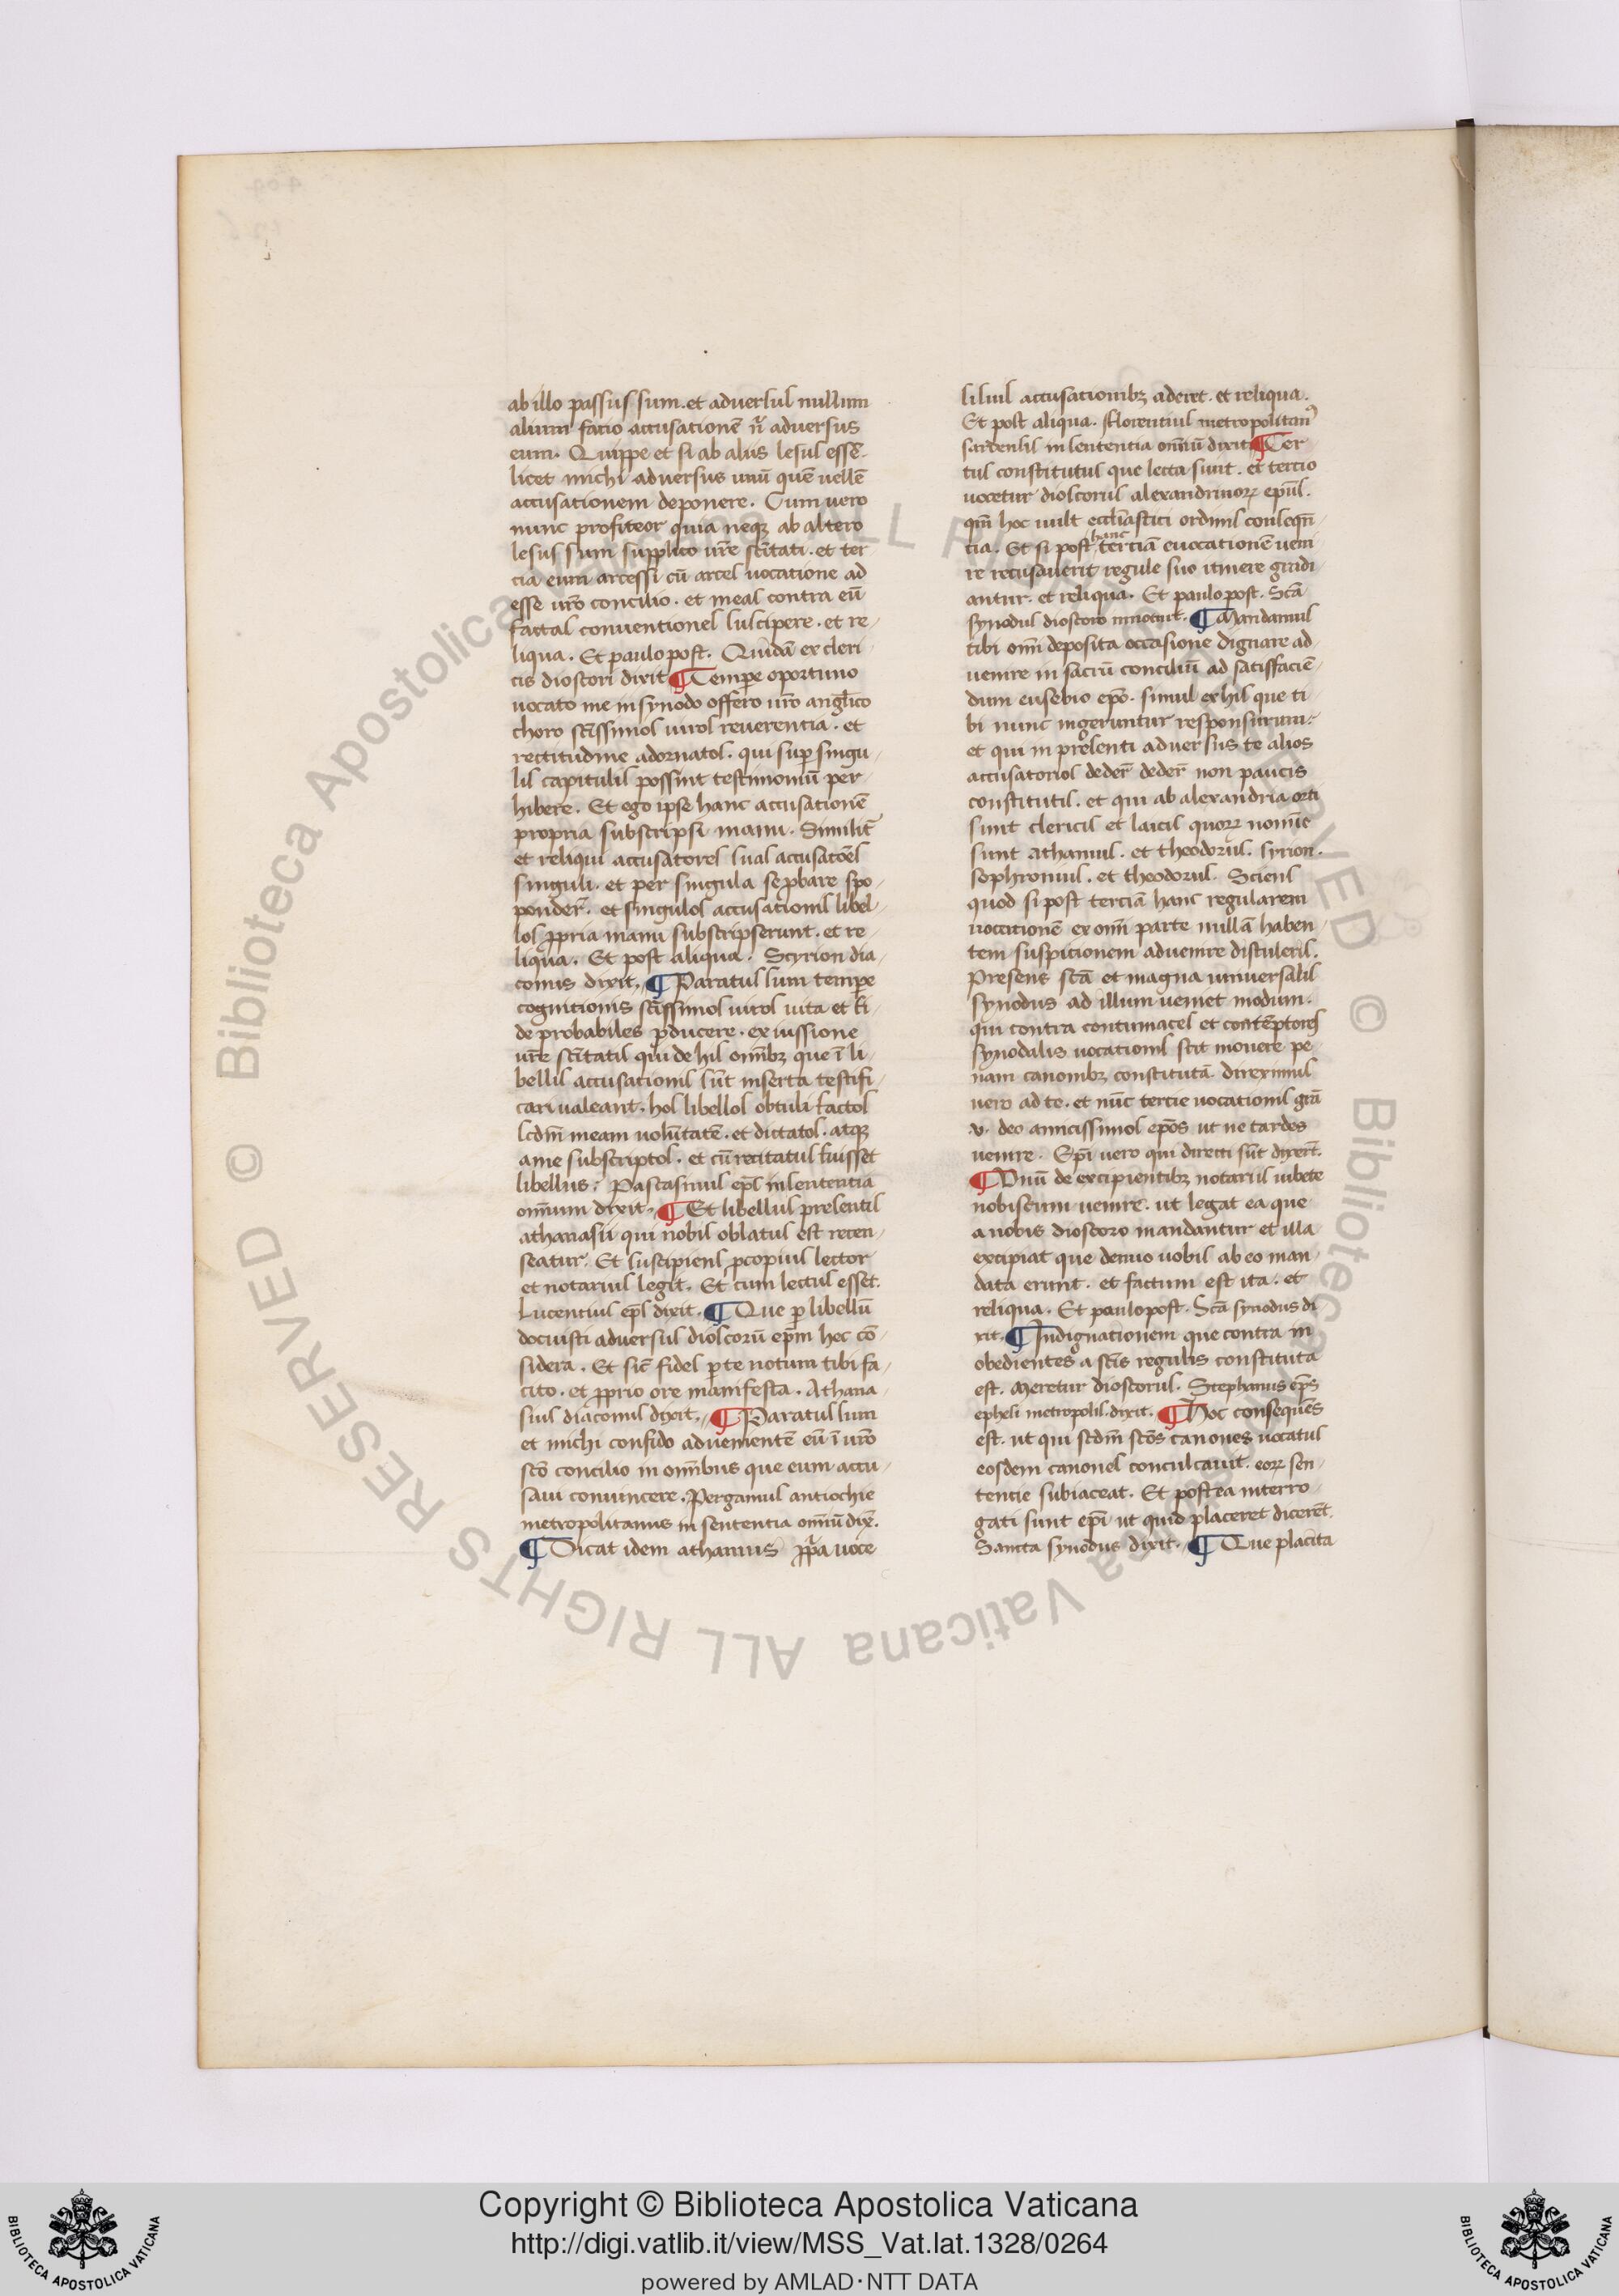 ab illo passus sum. et aduersus nullum
alium facio accusationē n̄ aduersus
eum. Quippe et si ab aliis lesus essē.
licet michi aduersus unū quē uellē
accusationem deponere. Cum uero
nunc profiteor quia neqꝫ ab altero
lesus sum supplico ur̄e sc̄itati. et ter
cia eum arcessi cū arces uocatione ad
esse ur̄o concilio. et meas contra eū
factas conuentiones suscipere. et re
liqua. Et paulo post. Quidā ex cleri
cis dioscori dixit ¶ Temꝑe oportuno
uocato me in synodo offero ur̄o angl̄ico
choro sc̄issimos uiros reuerentia. et
rectitudine adornatos. qui suꝑ singu
lis capitulis possint testimoniū per
hibere. Et ego ipse hanc accusationē
propria subscripsi manu. Similit̄
et reliqui accusatores suas accusatōēs
singuli. et per singula se ꝓbare spo
ponder̄. et singulos accusationis libel
los ꝓpria manu subscripserunt. et re
liqua. Et post aliqua. Scyrion dia
conus dixit. ¶ Paratus sum temꝑe
cognitionis sc̄issimos uiros uita et fi
de probabiles ꝓducere. ex iussione
ur̄e sc̄itatis qui de his om̄ibꝫ que ī li
bellis accusationis sūt inserta testifi
cari ualeant. hos libellos obtuli factos
scd̄m meam uolūtatē. et dictatos. atqꝫ
a me subscriptos. et cū recitatus fuisset
libellus: Pascasinus ep̄s in sententia
omnium dixit. ¶ Et libellus presentis
athanasii qui nobis oblatus est recen
seatur. Et suscipiens ꝓcopius lector
et notarius legit. Et cum lectus esset.
Lucentius ep̄s dixit. ¶ Que ꝑ libellū
docuisti aduersus dioscorū ep̄m hec cō
sidera. Et sic̄ fides ꝑ te notum tibi fa
cito. et ꝓprio ore manifesta. Athana
sius diaconus dixit. ¶ Paratus sum
et michi confido aduenientē eū ī ur̄o
sc̄o concilio in om̄ibus que eum accu
saui conuincere. Pergamus antiochie
metropolitanus in sententia om̄iū dix̄.
¶ Dicat idem athanius ꝓp̄a uoce
si suis accusationibꝫ aderet. et reliqua.
Et post aliqua. Florentius metropolitanꝰ
sardensis in sententia om̄iū dixit ¶ Cer
tus constitutus que lecta sunt. et tercio
uocetur dioscorus alexandrinoꝝ ep̄us.
qm̄ hoc uult eccl̄iastici ordinis conseqn̄
cia. Et si post hanc terciā euocationē ueni
re recusauerit regule suo itinere gradi
antur. et reliqua. Et paulo post. Sc̄a
synodus dioscoro innotuit. ¶ Mandamus
tibi om̄i deposita occasione dignare ad
uenire in sacrū conciliū ad satisfaciē
dum eusebio ep̄o. simul ex his que ti
bi nunc ingeruntur responsurum:
et qui in presenti aduersus te alios
accusatorios deder̄ deder̄ non paucis
constitutis. et qui ab alexandria orti
sunt clericis et laicis quoꝝ nomīe
sunt athanius. et theodorus. syrion.
sophronius. et theodorus. Sciens
quod si post terciā hanc regularem
uocationē ex om̄i parte nullā haben
tem suspicionem aduenire distuleris.
Presens sc̄a et magna uniuersalis
synodus ad illum ueniet modum.
qui contra contumaces et contēptores
synodalis uocationis scit mouere pe
nam canonibꝫ constitutā. direximus
uero ad te. et nūc tercie uocationis grā
.v. deo amicissimos ep̄os ut ne tardes
uenire. Ep̄i uero qui directi sūt dixer̄t.
¶ Unū de excipientibꝫ notariis iubete
nobiscum uenire. ut legat ea que
a nobis dioscoro mandantur et illa
excipiat que denuo uobis ab eo man
data erunt. et factum est ita. et
reliqua. Et paulo post. Sc̄a synodus di
xit. ¶ Indignationem que contra in
obedientes a sc̄is regulis constituta
est. meretur dioscorus. Stephanus ep̄s
ephesi metropolis. dixit. ¶ Hoc consequēs
est. ut qui scd̄m sc̄os canones uocatus
eosdem canones conculcauit. eoꝝ sen
tencie subiaceat. Et postea interro
gati sunt ep̄i ut quid placeret dicerēt.
Sancta synodus dixit. ¶ Que placita
© Biblioteca Apostolica Vaticana ALL RIGHTS RESERVED
Copyright © Biblioteca Apostolica Vaticana
http://digi.vatlib.it/view/MSS_Vat.lat.1328/0264
powered by AMLAD·NTT DATA
BIBLIOTECA APOSTOLICA VATICANA
BIBLIOTECA APOSTOLICA VATICANA